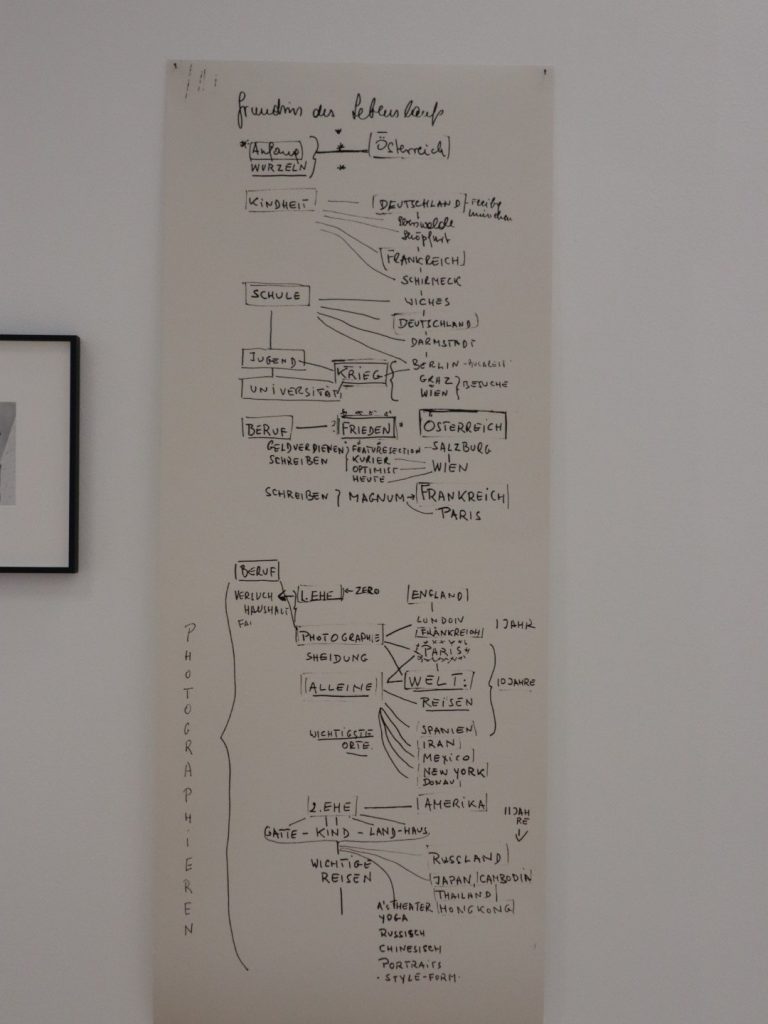 Grundriss des Lebenslaufs
* Anfang * [Österreich]
WURZELN *
KINDHEIT [DEUTSCHLAND]
[FRANKREICH]
SCHIRMECK
SCHULE WICHES
[DEUTSCHLAND]
DARMSTADT
JUGEND BERLIN - BUKAREST
KRIEG GRAZ BESUCHE
UNIVERSITÄT WIEN
BERUF FRIEDEN ÖSTERREICH
GELDVERDIENEN FEATURESECTION - SALZBURG
SCHREIBEN KURIER
OPTIMIST WIEN
HEUTE
SCHREIBEN } MAGNUM → FRANKREICH
PARIS
BERUF
1. EHE ← ZERO [ENGLAND]
HAUSHALT
LONDON 1 JAHR
PHOTOGRAPHIE [FRANKREICH]
SHEIDUNG PARIS
10 JAHRE
[ALLEINE] WELT:
REISEN
WICHTIGSTE SPANIEN
ORTE. IRAN
MEXICO
NEW YORK
DONAU
2. EHE AMERIKA
11 JAHRE
GATTE - KIND - LAND-HAUS
WICHTIGE RUSSLAND
REISEN JAPAN, CAMBODIA
THAILAND
A'S THEATER HONGKONG
YOGA
RUSSISCH
CHINESISCH
PORTRAITS
- STYLE-FORM.
PHOTOGRAPHIEREN